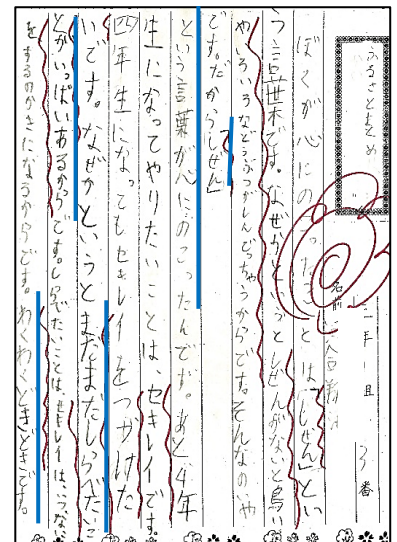 ふるさとまとめ
三年一組 3番
名前
ぼくが心にのこったことは「しぜん」とい
う言葉です。なぜかというとしぜんがないと鳥い
やいろいろなどうぶつがしんじゃうからです。そんなのいや
です。だから「しぜん」
という言葉が心にのこったんです。あと4年
生になってやりたいことは、セキレイです。
四年生になってもセキレイをつづけた
いです。なぜかというとまだまだしらべたいこ
とがいっぱいあるからです。しらべたいことは、セキレイは、いつな
をするのかきになるからです。わくわくどきどきです。